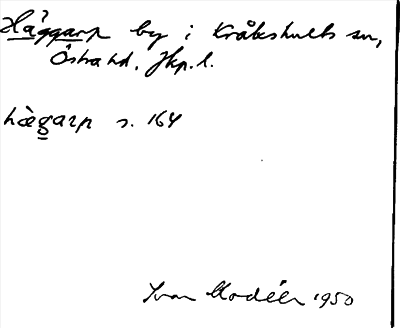 Häggarp by i Kråkshults sn,
Östra hd, Jkp. l.
hàgarp s. 164
Ivar Modéer 1950